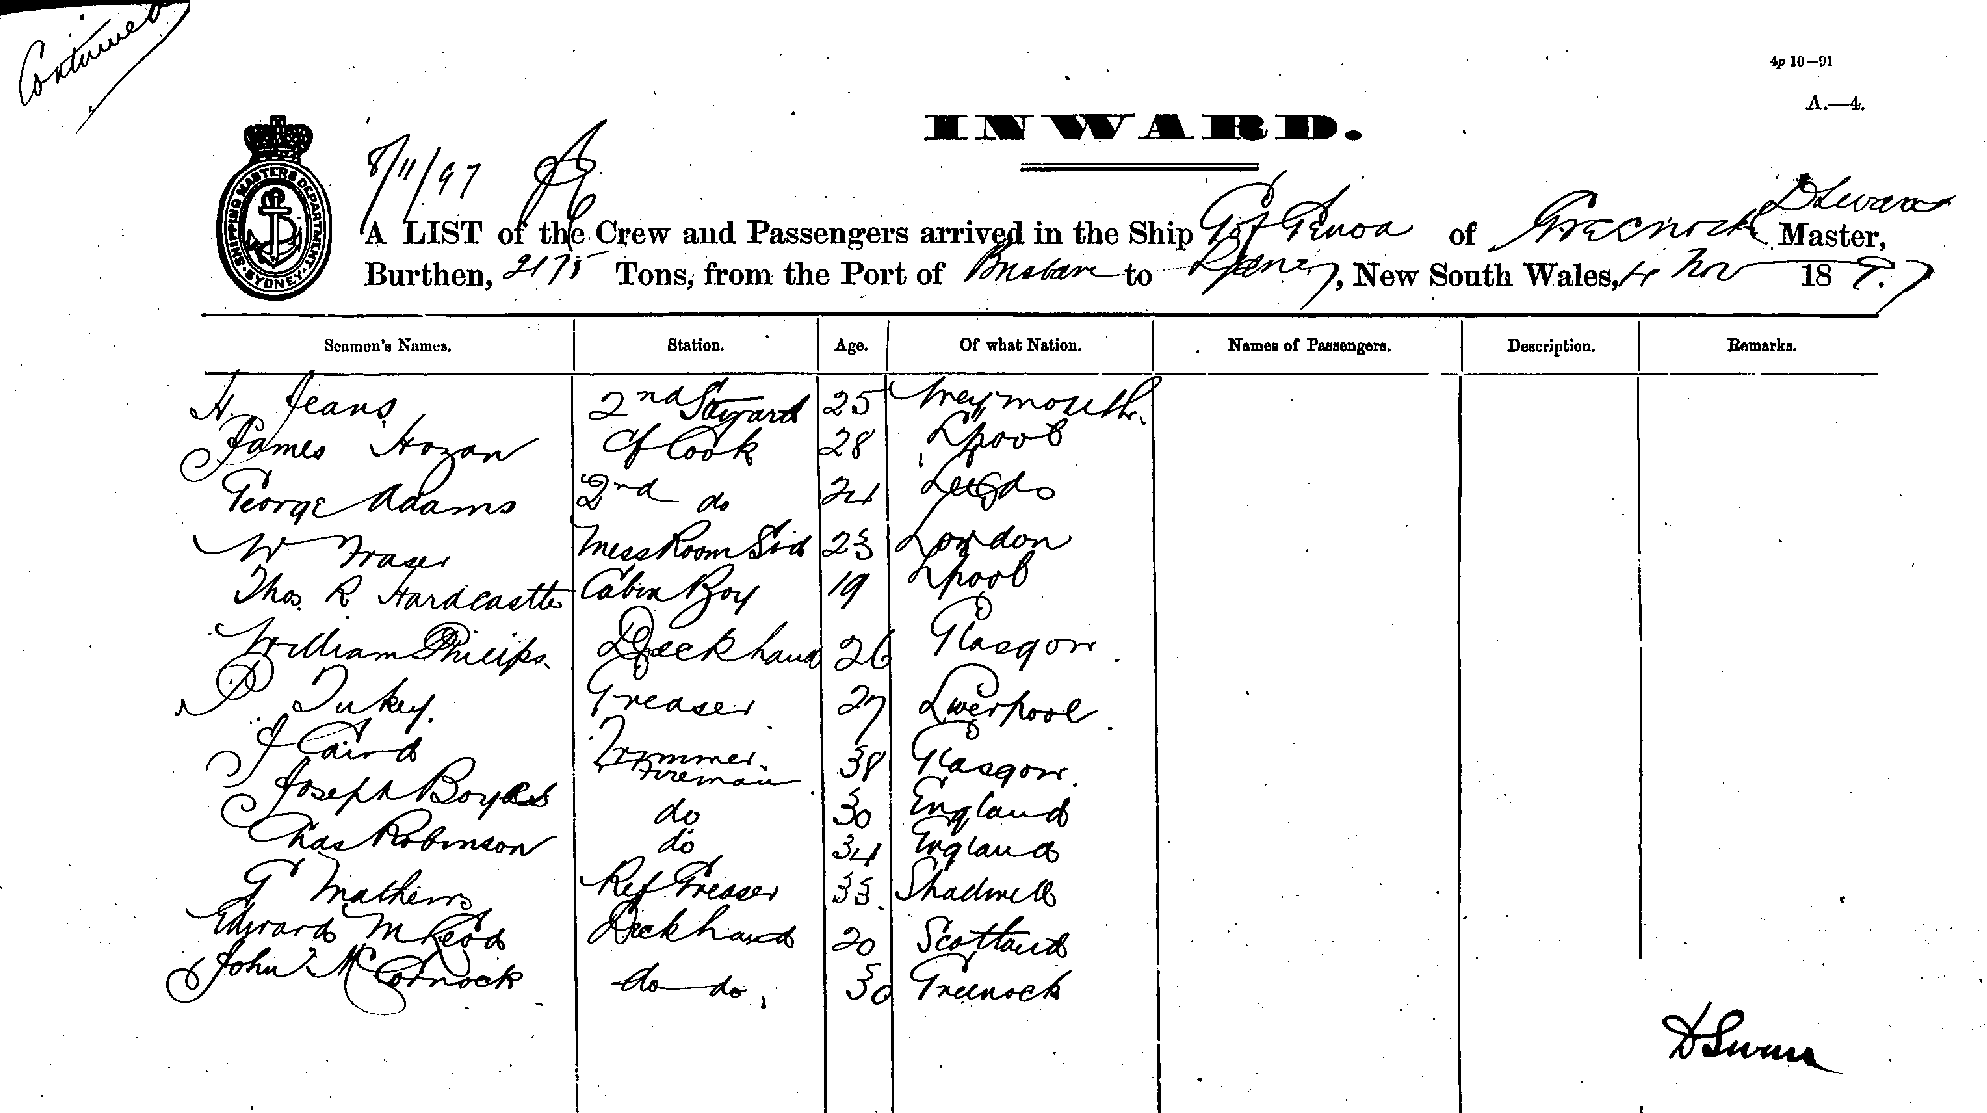 Continued
4p 10—91
A.—4.
INWARD.
SHIPPING MASTERS DEPARTMENT SYDNEY
8/11/97
D Swan
A LIST of the Crew and Passengers arrived in the Ship G of Genoa of Greenock Master,
Burthen, 2175 Tons, from the Port of Brisbane to Sydney, New South Wales, 4 Nov 1897
Seamen's Names. Station. Age. Of what Nation. Names of Passengers. Description. Remarks.
H Jeans 2nd Steward 25 Weymouth.
James Hogan Cf Cook 28 Lpool
George Adams 2nd do 24 Leeds
W Fraser Mess Room Std 23 London
Thos. R Hardcastle Cabin Boy 19 Lpool
William Philips Deckhand 26 Glasgow
P Tukey. Greaser 27 Liverpool
J Caird Trimmer 38 Glasgow.
Fireman
Joseph do 30 England
Chas Robinson do 34 England
G Mathews Ref Greaser 33 Shadwell
Edward McLeod Deckhand 20 Scotland
John McCornock do do 30 Greenock
D Swan